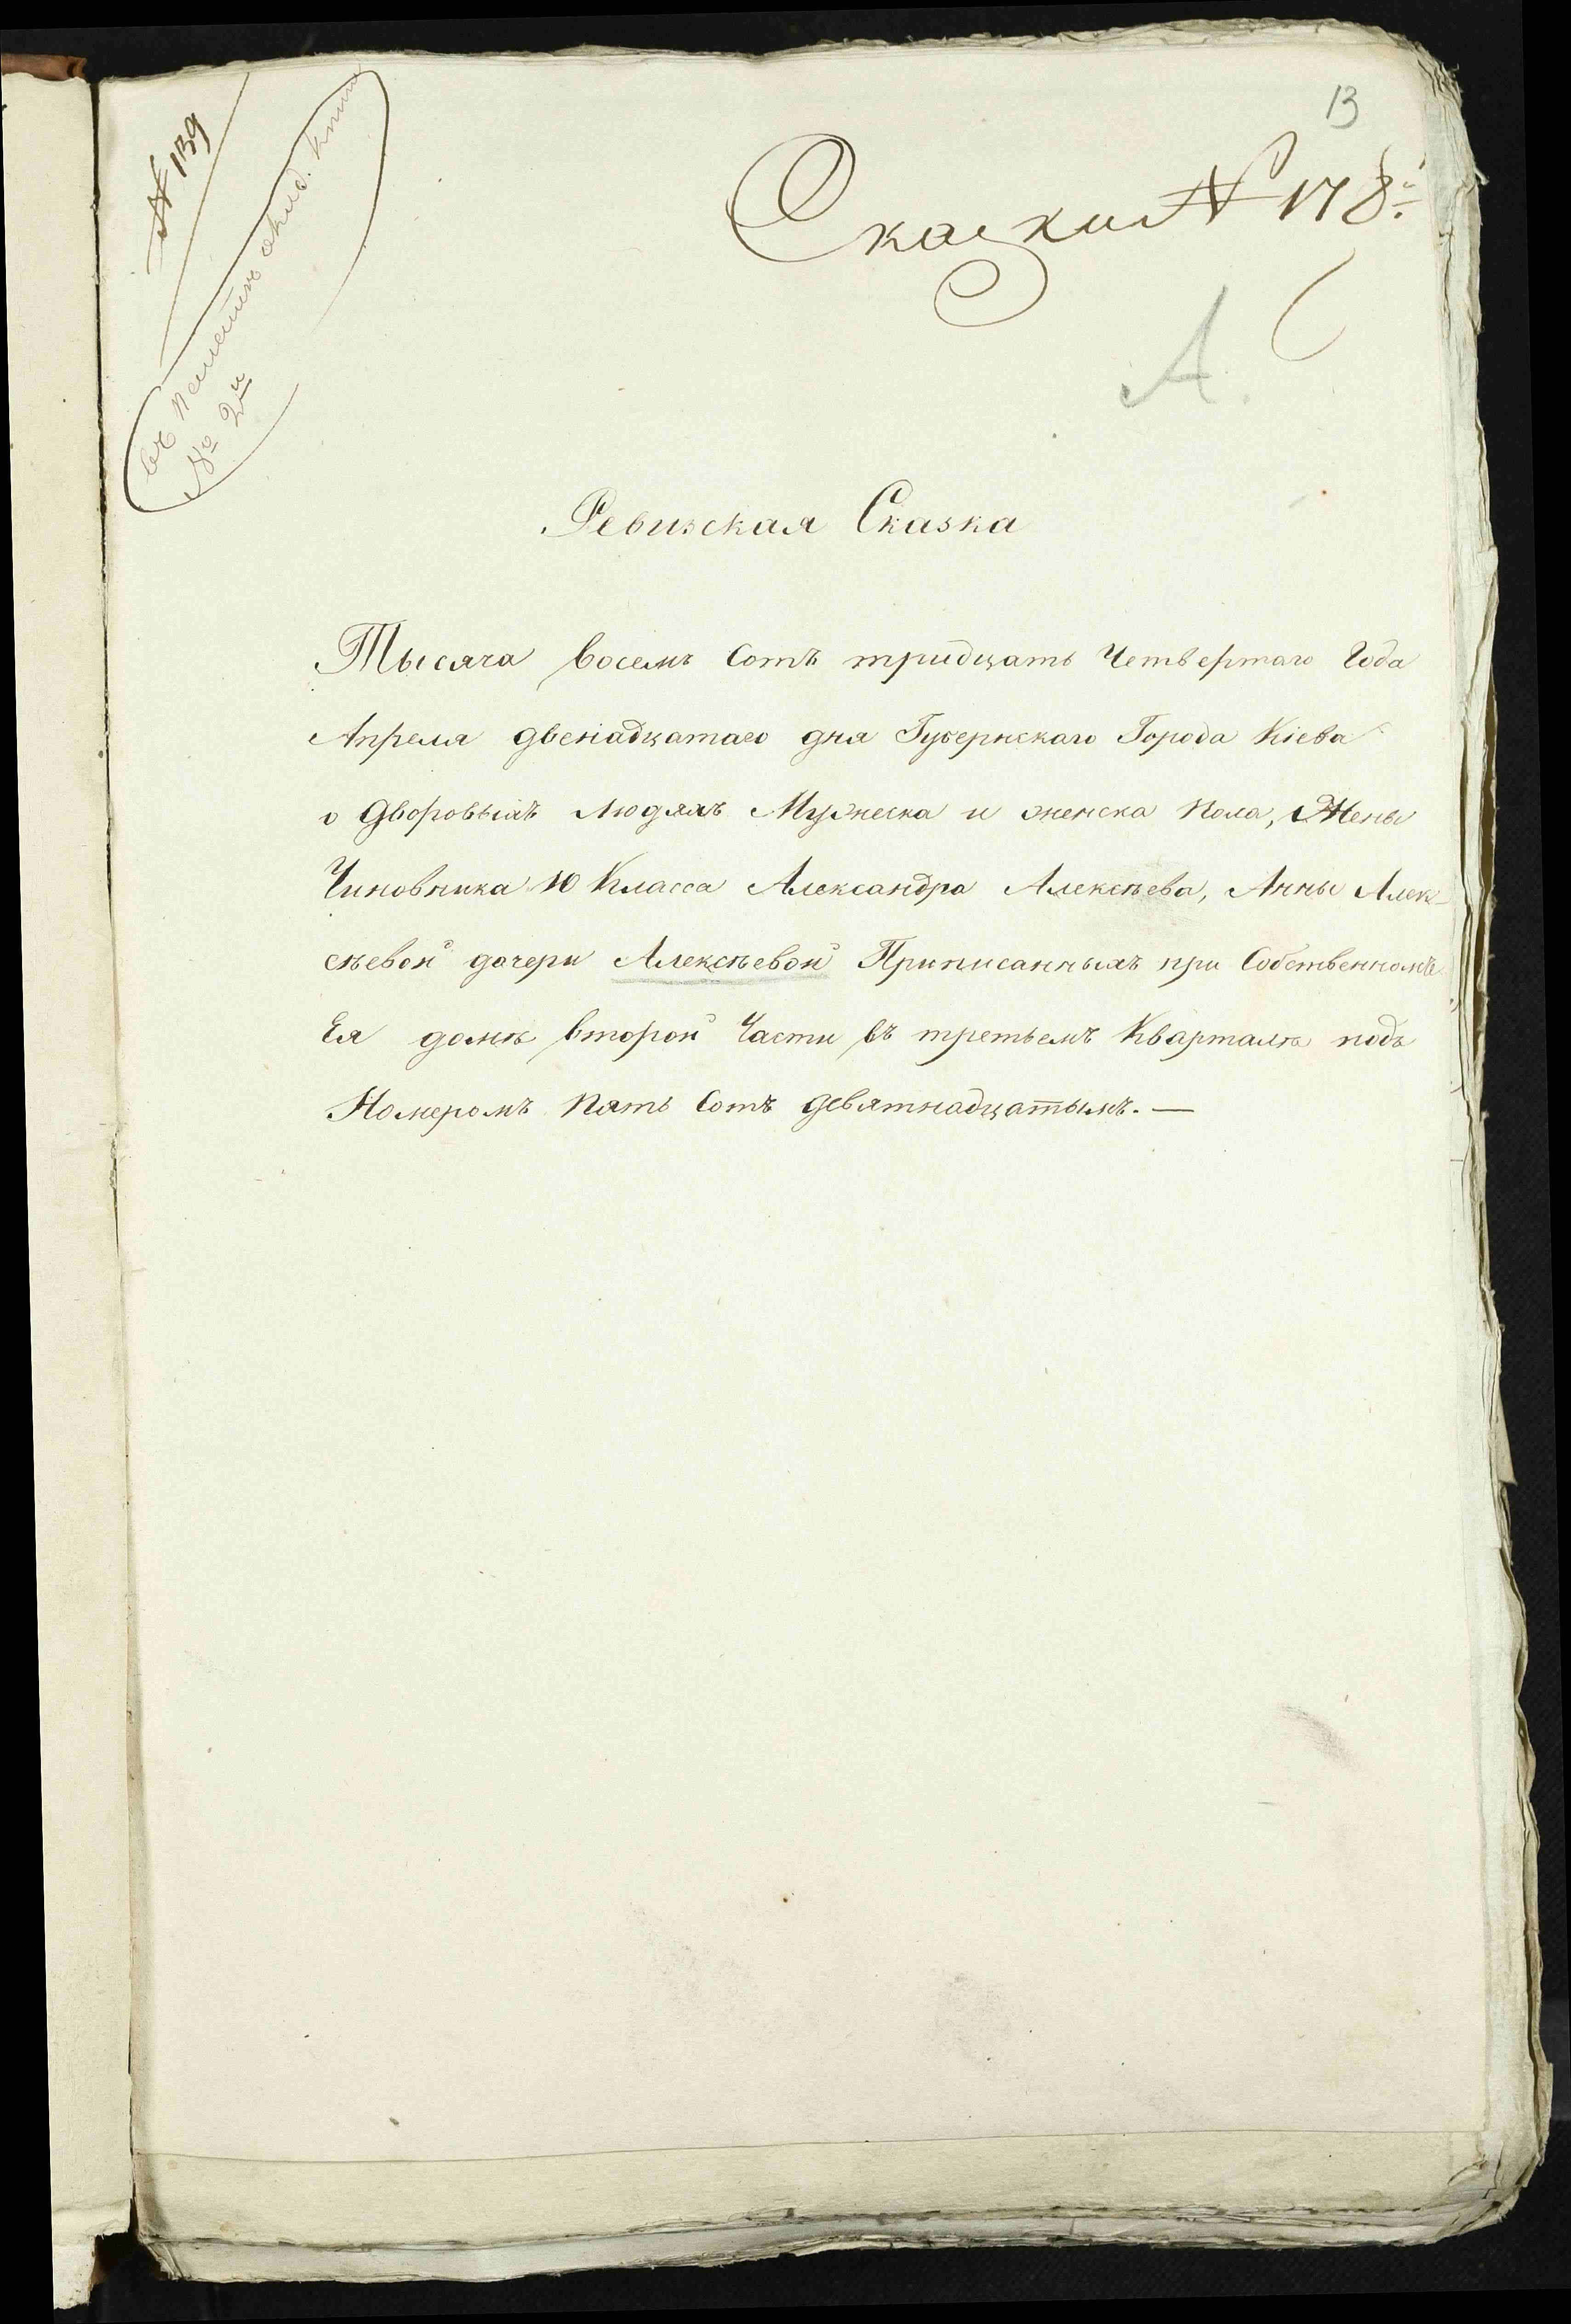 13
№ 139
Сказки № 178й
окла. книги
№ 2й
А.
Ревизская Сказка
Тысяча восемъ сотъ тридцать четвертаго Года
Апреля двенадцатаго дня Губернскаго Города Кіева
о Дворовыхъ Людяхъ Мужеска и женска Пола, Жены
Чиновника 10 Класса Александра Алексѣева, Анны Алек-
сѣевой дочери Алексѣевой Приписанныхъ при Собственномъ
Ея домѣ второй Части въ третьемъ Кварталѣ подъ
Номеромъ Пять Сотъ девятнадцатымъ. —